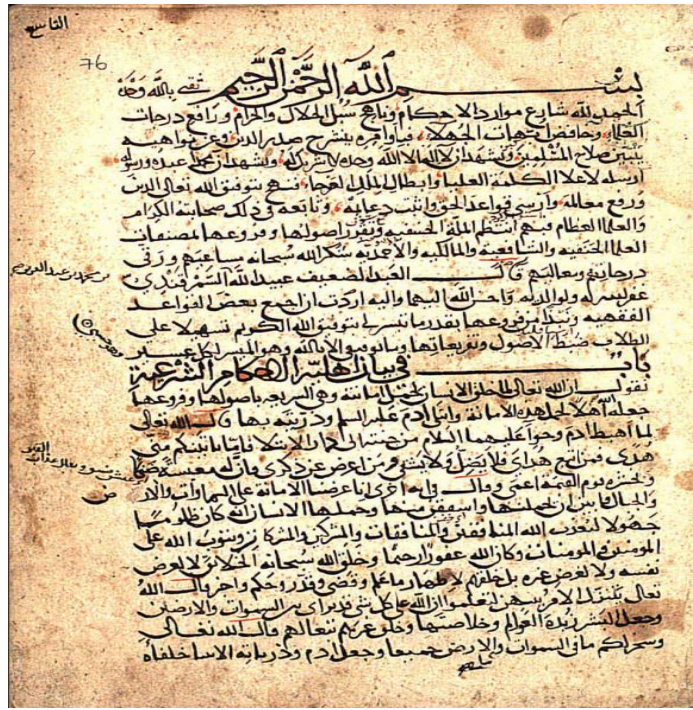 التاسع
76
بسم الله الرحمن الرحيم ثقتي بالله وحده
الحمد لله شارع موارد الاحكام وناهج سبل الحلال والحرام ورافع درجات
العلماء وخافض جهات الجهلاء
صلاح المسلمين ونشهد ان لا اله الا الله وحده لا شريك له ونشهد ان محمدا عبده ورسوله
ارسله لاعلا الكلمة العليا وابطال الملل بتوفيق الله تعالى الدين
ورفع معالمه وارسى قواعد الحق واثبت دعائمه وتابعه في ذلك صحابته الكرام
والعلما العظام فبهم انتظم الملة الحنيفيه وتقرر اصولها وفروعها لمصنفات
العلما الحنفيه والشافعية والمالكيه والاحمديه شكر الله سبحانه ساعيهم ورقى
درجاتهم ومعاليهم قال العبد الضعيف عبيد الله السمرقندي
غفر له ولوالديه واحسن الله اليهما واليه اردت ان اجمع بعض القواعد
الفقهيه من فروعها بقدر ما تيسر لي بتوفيق الله الكريم تسهيلا على
الطلاب ضبط الاصول وتفريعاتها وما توفيقي الا بالله وهو الميسر لكل عسير
باب في بيان اهلية الاحكام الشرعية
نقول ان الله تعالى لما خلق الانسان لحمل امانته وهي الشريعه باصولها وفروعها
جعله اهلا لحمل هذه الامانة وابتلى ادم عليه السلم وذريته بها قال الله تعالى
لما اهبط ادم وحوا عليهما السلام من جنته الى دار الابتلا فاما ياتينكم مني
هدى فمن اتبع هداي فلا يضل ولا يشقى ومن اعرض عن ذكري فان له معيشة ضنكا
ونحشره يوم القيمة اعمى وقال في اية اخرى انا عرضنا الامانة على السماوات والارض
والجبال فابين ان يحملنها واشفقن منها وحملها الانسان انه كان ظلوما
جهولا ليعذب الله المنافقين والمنافقات والمشركين والمشركات ويتوب الله على
المومنين والمومنات وكان الله غفورا رحيما وخلق الله سبحانه الخلائق لا لغرض
نفسه ولا لغرض غيره بل خلقهم لاظهار ما علم وقضى وقدر وحكم واخبر قال الله
تعالى يتنزل الامر بينهن لتعلموا ان الله على كل شي قدير السموات والارضين
وجعل البشر زبدة العوالم وخلاصتها وخلق غيرهم قال الله تعالى
وسخر لكم ما في السموات والارض جميعا وجعل ادم وذرياته الانسا خلفاه